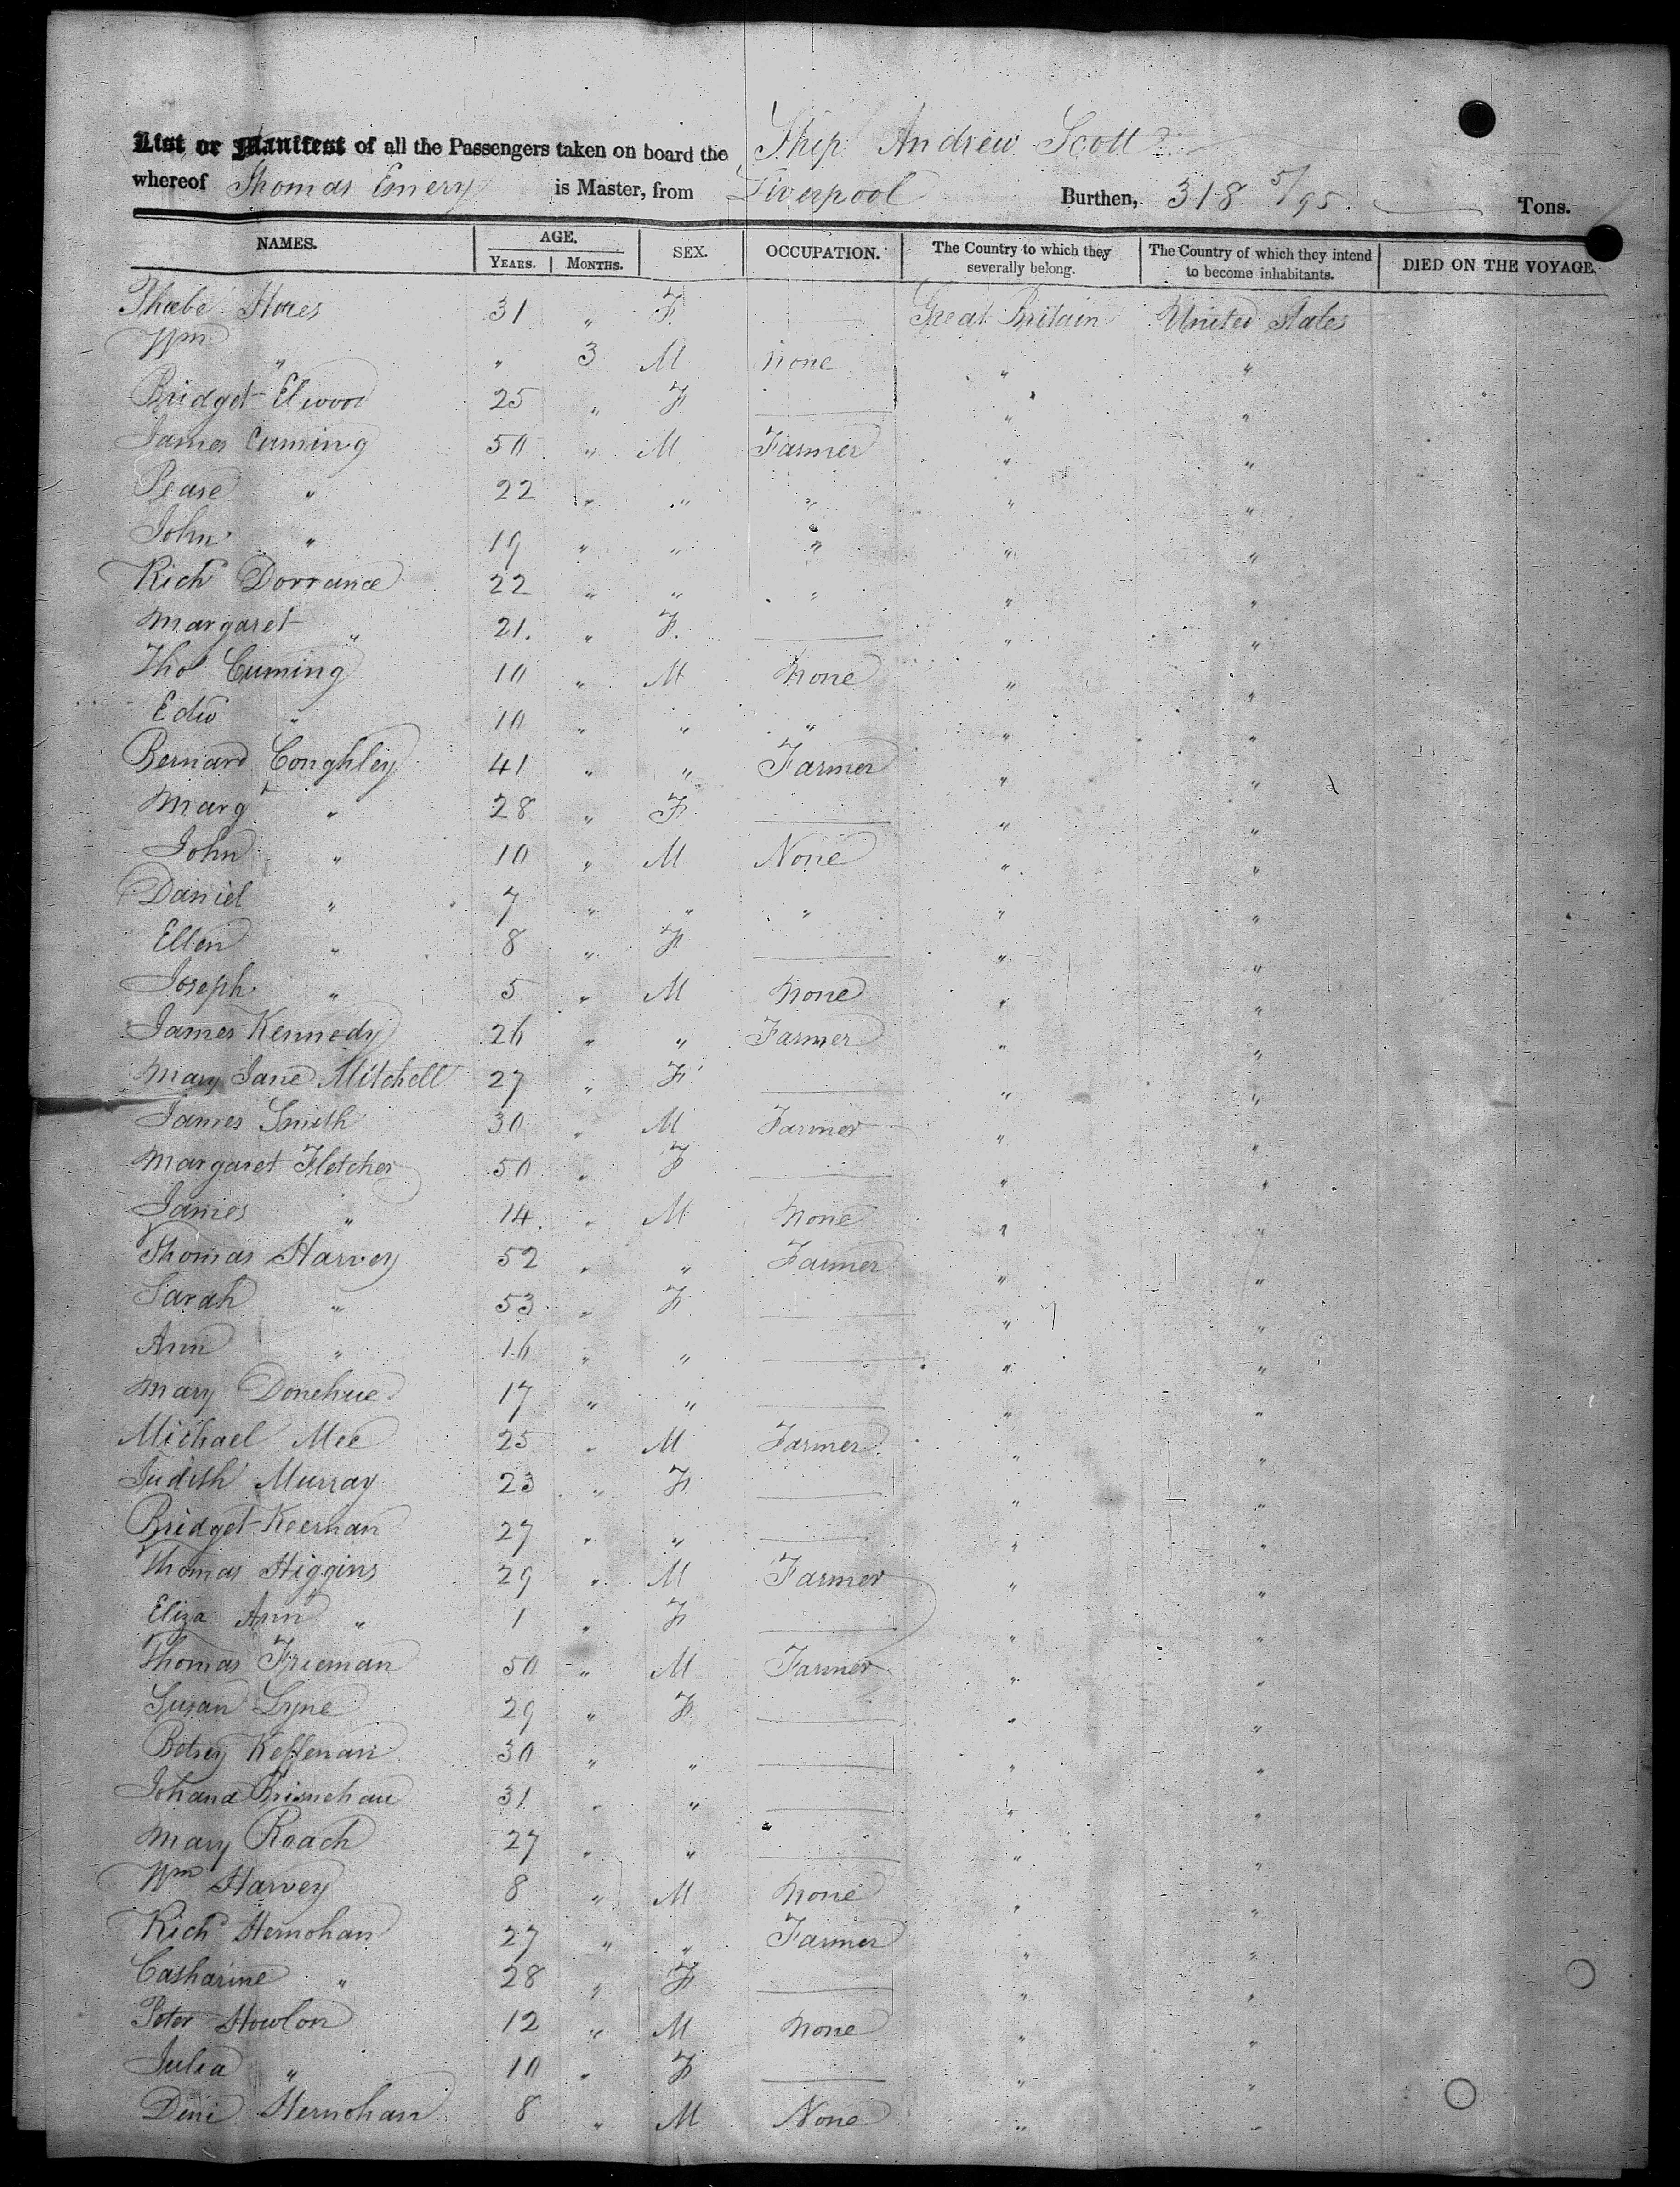 List or Manifest of all the Passengers taken on board the Ship Andrew Scott
whereof Thomas Emery is Master, from Liverpool Burthen, 318 5/95 Tons.
NAMES. AGE. SEX. OCCUPATION. The Country to which they severally belong. The Country of which they intend to become inhabitants. DIED ON THE VOYAGE.
YEARS. MONTHS.
Phœbe 31 " F. — Great Britain United States
Wm " " 3 M None " "
Bridget Elwood 25 " F — " "
James Cuming 50 " M Farmer " "
Pearse " 22 " " " " "
John " 19 " " " " "
Richd Dorrance 22 " " " " "
Margaret " 21. " F. — " "
Thos Cuming 10 " M None " "
Edwd " 10 " " " " "
Bernard Conghley 41 " " Farmer " "
Margt " 28 " F — " "
John " 10 " M None " "
Daniel " 7 " " " " "
Ellen " 8 " F — " "
Joseph " 5 " M None " "
James Kennedy 26 " " Farmer " "
Mary Jane Mitchell 27 " F — " "
James Smith 30 " M Farmer " "
Margaret Fletcher 50 " F — " "
James " 14. " M None " "
Thomas Harvey 52 " " Farmer " "
Sarah " 53 " F — " "
Ann " 16 " " — " "
Mary Donehue 17 " " — " "
Michael Mee 25 " M Farmer " "
Judith Murray 23 " F — " "
Bridget Keernan 27 " " — " "
Thomas Higgins 29 " M Farmer " "
Eliza Ann " 1 " F — " "
Thomas Freeman 50 " M Farmer " "
Susan Lyne 29 " F — " "
Betsey Keffenan 30 " " — " "
Johana 31 " " — " "
Mary Roach 27 " " — " "
Wm Harvey 8 " M None " "
Richd Hernohan 27 " " Farmer " "
Catharine " 28 " F — " "
Peter Howlon 12 " M None " "
Julia " 10 " F — " "
Hernohan 8 " M None " "